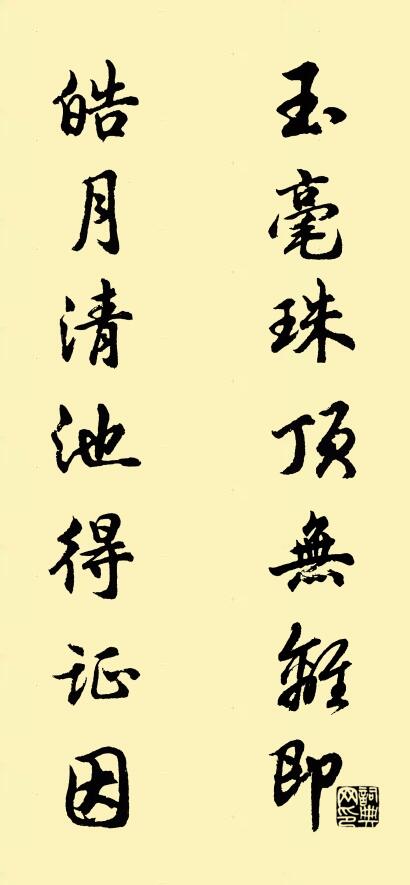 玉毫珠顶無離即
皓月清池得证因
詞典网印